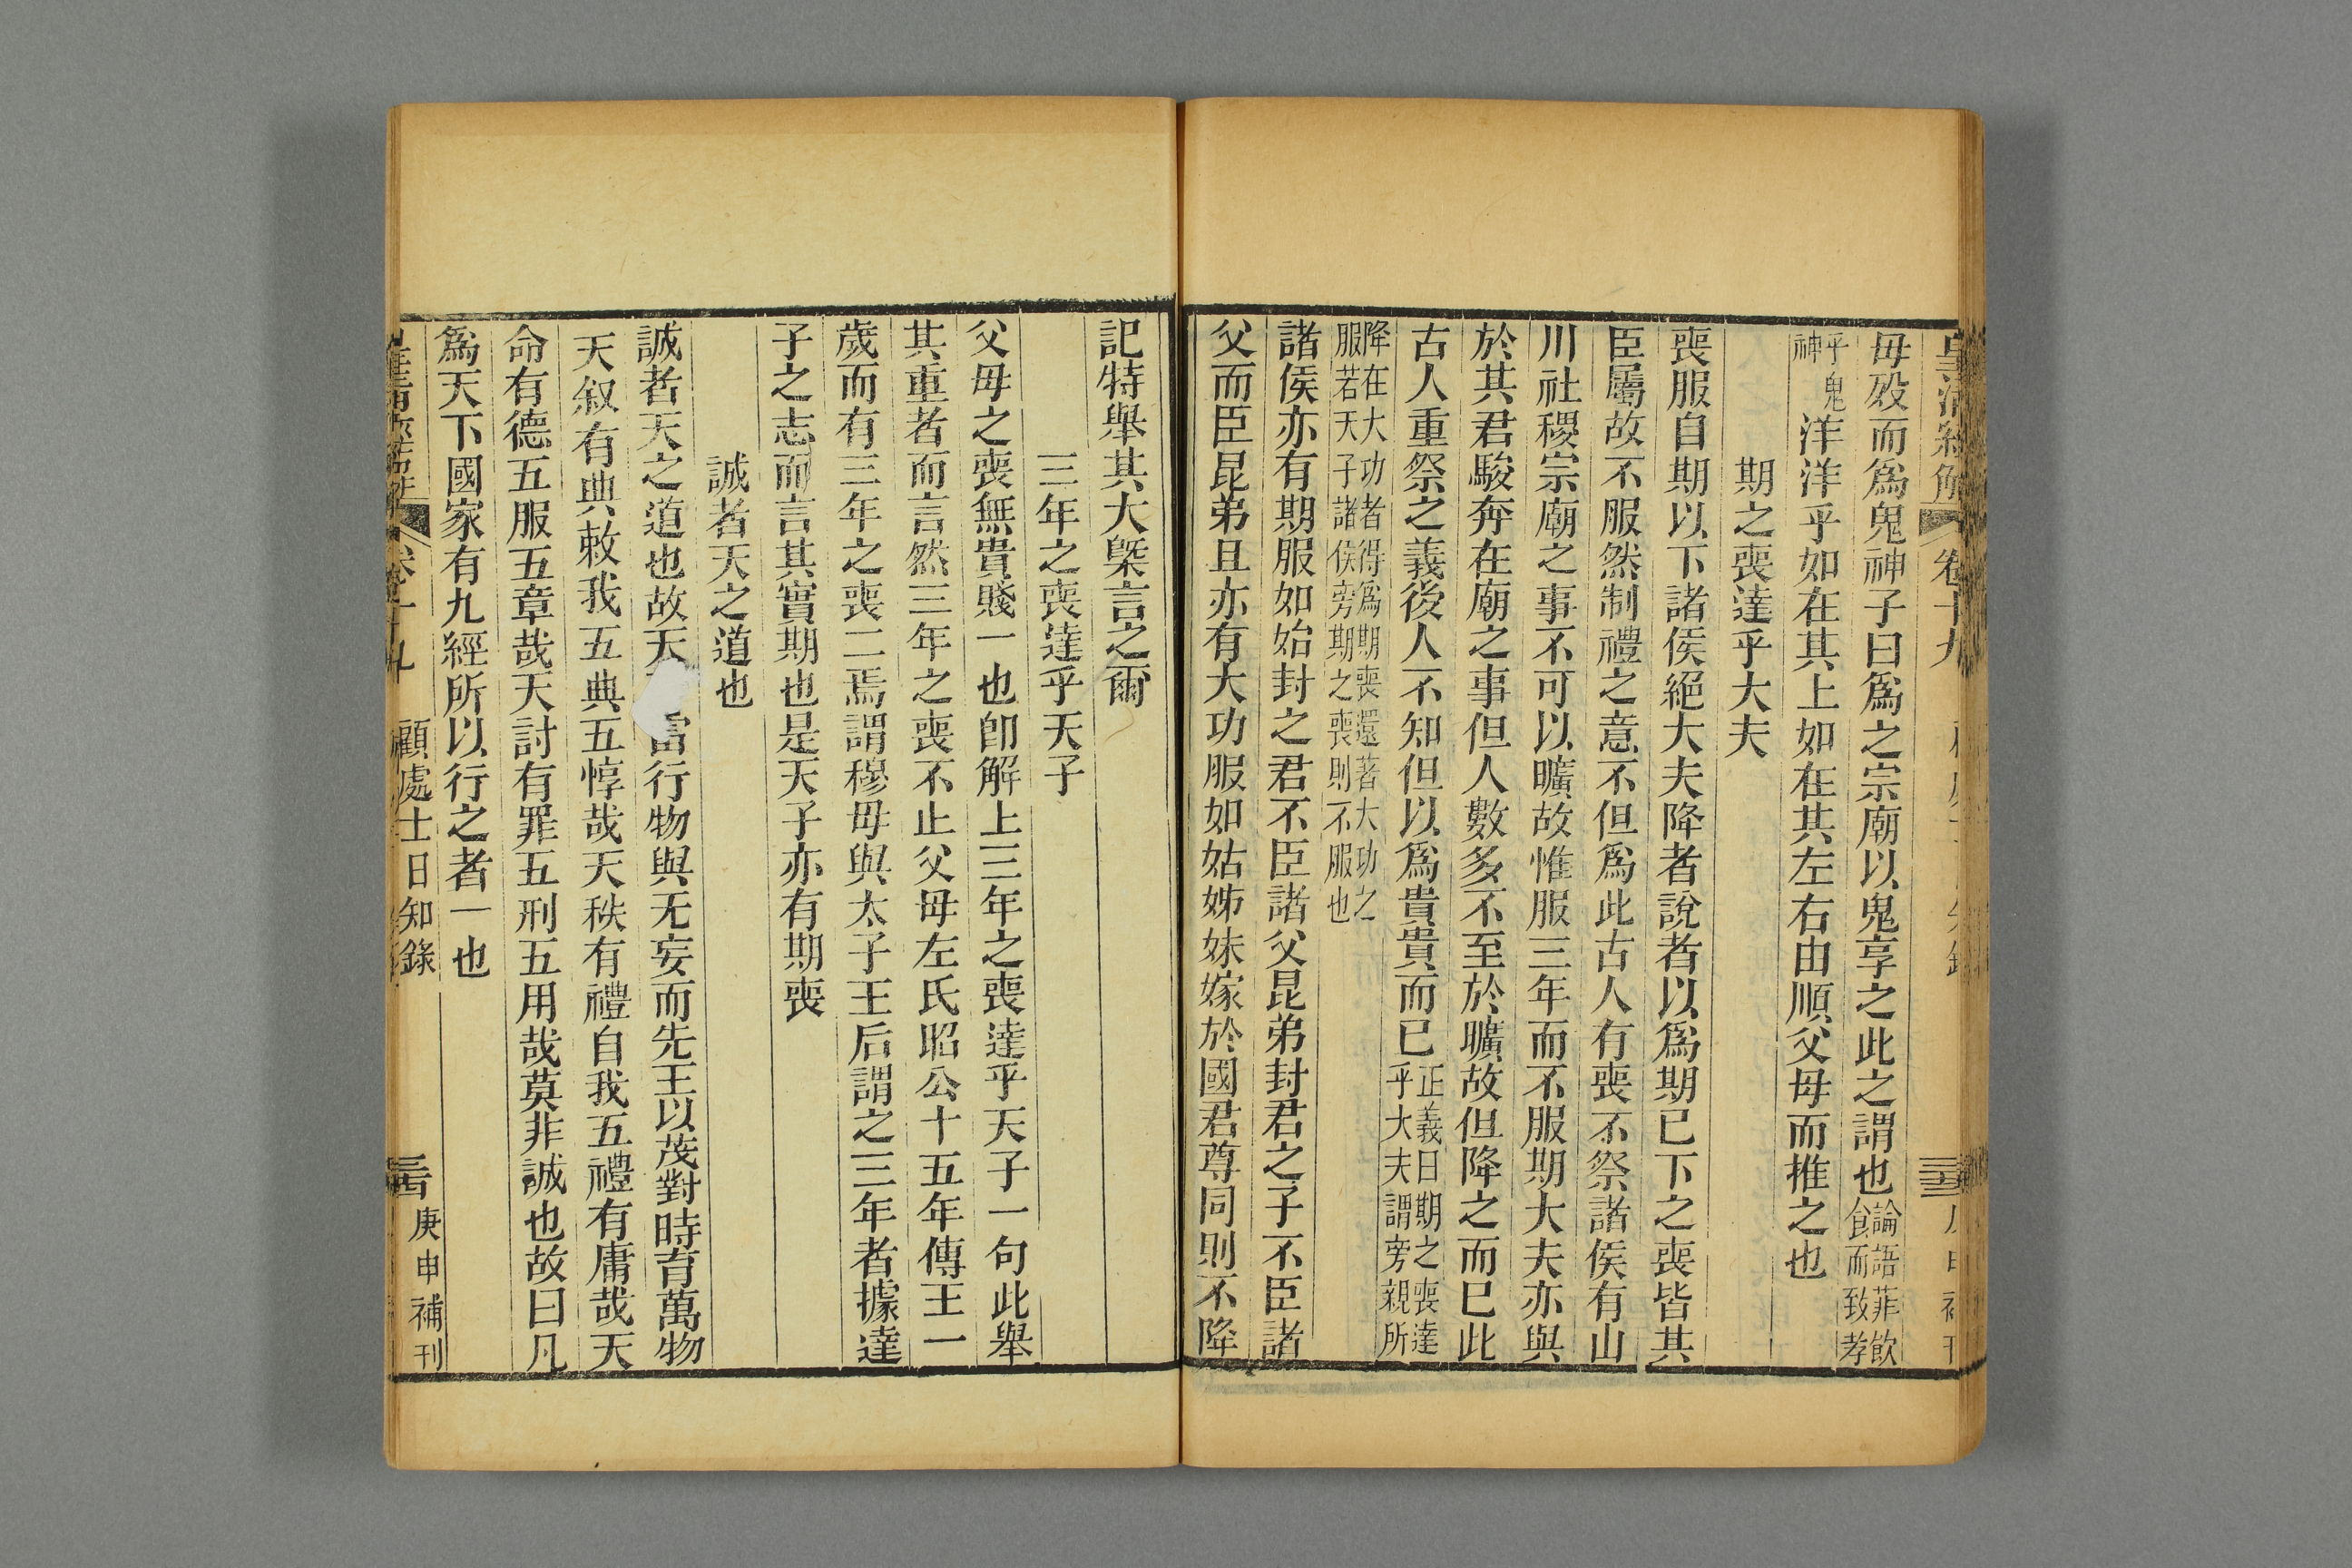 皇清經解 卷十九
毋歿而爲鬼神子曰爲之宗廟以鬼享之此之謂也論語菲飲食而致孝
乎鬼神洋洋乎如在其上如在其左右由順父母而推之也
期之喪達乎大夫
喪服自期以下諸侯絕大夫降者說者以爲期已下之喪皆其
臣屬故不服然制禮之意不但爲此古人有喪不祭諸侯有山
川社稷宗廟之事不可以曠故惟服三年而不服期大夫亦與
於其君駿奔在廟之事但人數多不至於曠故但降之而已此
古人重祭之義後人不知但以爲貴貴而已正義曰期之喪達乎大夫謂旁親所
降在大功者得爲期喪還著大功之服若天子諸侯旁期之喪則不服也
諸侯亦有期服如始封之君不臣諸父昆弟封君之子不臣諸
父而臣昆弟且亦有大功服如姑姊妹嫁於國君尊同則不降
記特舉其大槩言之爾
三年之喪達乎天子
父母之喪無貴賤一也卽解上三年之喪達乎天子一句此舉
其重者而言然三年之喪不止父母左氏昭公十五年傳王一
歲而有三年之喪二焉謂穆母與太子王后謂之三年者據達
子之志而言其實期也是天子亦有期喪
誠者天之道也
誠者天之道也故天雷行物與无妄而先王以茂對時育萬物
天叙有典敕我五典五惇哉天秩有禮自我五禮有庸哉天
命有德五服五章哉天討有罪五刑五用哉莫非誠也故曰凡
爲天下國家有九經所以行之者一也
卷十九 顧處士日知錄 庚申補刊